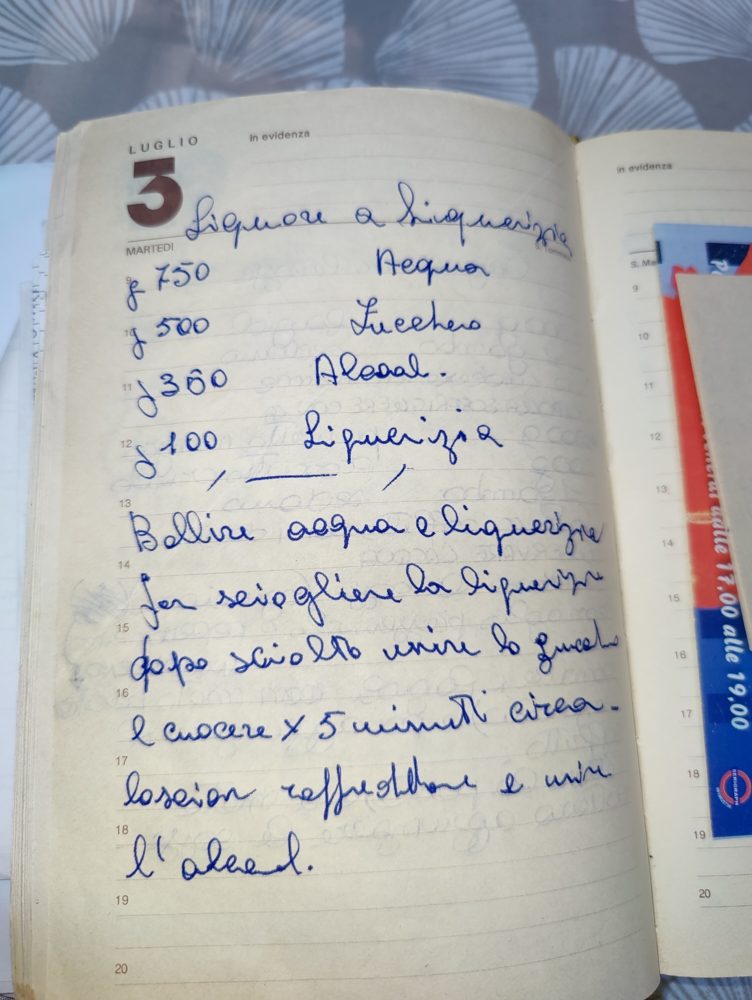 LUGLIO
in evidenza
3
MARTEDI
Liquore a Liquerizia
g 750 Acqua
g 500 Zucchero
g 360 Alcool.
g 100 Liquerizia
Bollire acqua e liquerizia
far sciogliere la liquerizia
dopo sciolto unire lo zucchero
e cuocere x 5 minuti circa.
lasciar raffreddare e unire
l'alcool.
9
10
11
12
13
14
15
16
17
18
19
20
in evidenza
9
10
11
12
13
14
15
16
17
18
19
20
17.00 alle 19.00